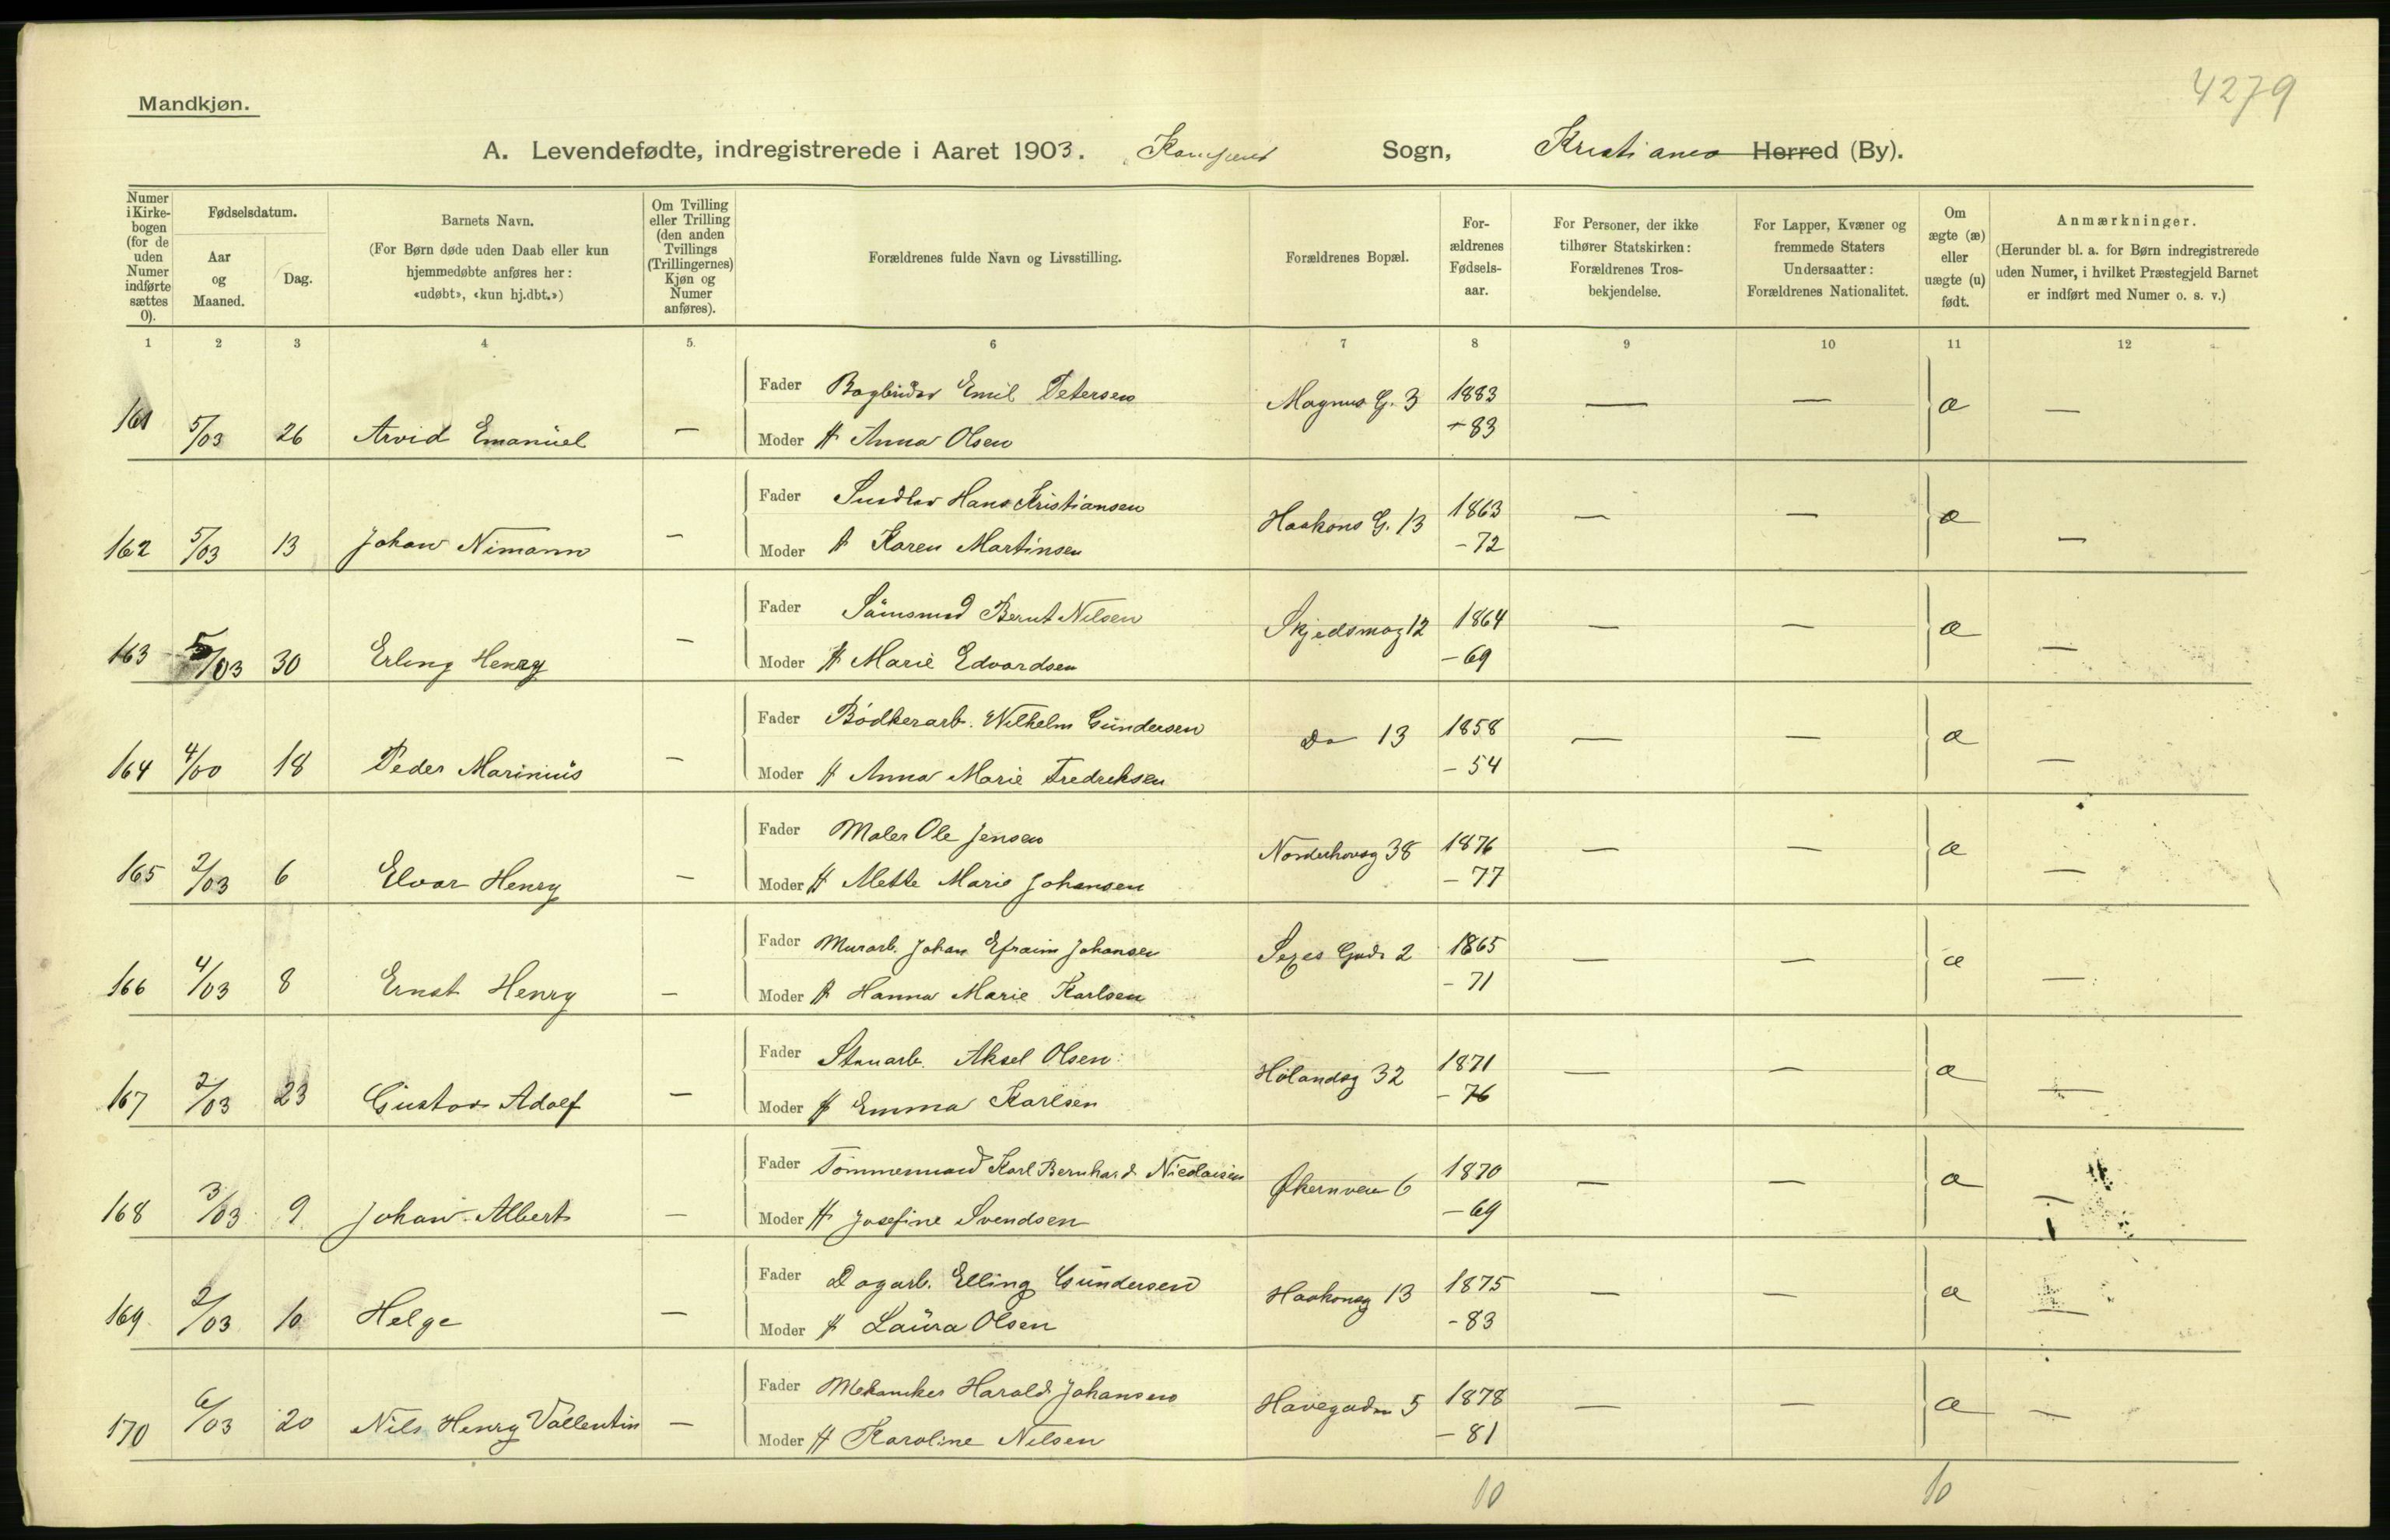 4279
Mandkjøn.
A. Levendefødte, indregistrerede i Aaret 1903. Kampens Sogn, Kristiania Herred (By).
Numer i Kirkebogen (for de uden Numer indførte sættes 0).
Fødselsdatum.
Aar og Maaned.
Dag.
Barnets Navn.
(For Børn døde uden Daab eller kun hjemmedøbte anføres her: «udøbt», «kun hj.dbt.»)
Om Tvilling eller Trilling (den anden Tvillings (Trillingernes) Kjøn og Numer anføres).
Forældrenes fulde Navn og Livsstilling.
Forældrenes Bopæl.
Forældrenes Fødselsaar.
For Personer, der ikke tilhører Statskirken: Forældrenes Trosbekjendelse.
For Lapper, Kvæner og fremmede Staters Undersaatter: Forældrenes Nationalitet.
Om ægte (æ) eller uægte (u) født.
Anmærkninger.
(Herunder bl. a. for Børn indregistrerede uden Numer, i hvilket Præstegjeld Barnet er indført med Numer o. s. v.)
1 2 3 4 5. 6 7 8 9 10 11 12
Fader Bogbinder Emil Petersen Magnus G. 3 1883 — — æ —
161 5/03 26 Arvid Emanuel — Moder H Anna Olsen - 83
Fader Snedker Hans Kristiansen Haakons G. 13 1863 — — æ —
162 5/03 13 Johan Nimann — Moder H Karen Martinsen - 72
Fader Bernt Nilsen Skjedsmog 12 1864 — — æ —
163 5/03 30 Erling Henry — Moder H Marie Edvardsen - 69
Fader Bödkerarb. Wilhelm Gundersen Do 13 1858 — — æ —
164 4/00 18 Peder Marinius — Moder H Anna Marie Fredriksen - 54
Fader Maler Ole Jensen Norderhovsg 38 1876 — — æ —
165 2/03 6 Elvar Henry — Moder H Mette Marie Johansen - 77
Fader Murarb. Johan Efraim Johansen Sexes Gade 2 1865 — — æ —
166 4/03 8 Ernst Henry — Moder H Hanna Marie Karlsen - 71
Fader Stenarb. Aksel Olsen Hölandsg 32 1871 — — æ —
167 2/03 23 Gustav Adolf — Moder H Emma Karlsen - 76
Fader Tömmermand Karl Bernhard Nicolaisen Økernveien 6 1870 — — æ —
168 3/03 9 Johan Albert — Moder H Josefine Svendsen - 69
Fader Dagarb. Elling Gundersen Haakonsg 13 1875 — — æ —
169 2/03 10 Helge — Moder H Laura Olsen - 83
Fader Mekaniker Harald Johansen Havegaden 5 1878 — — æ —
170 6/03 20 Nils Henry Vallentin — Moder H Karoline Nilsen - 81
10 10